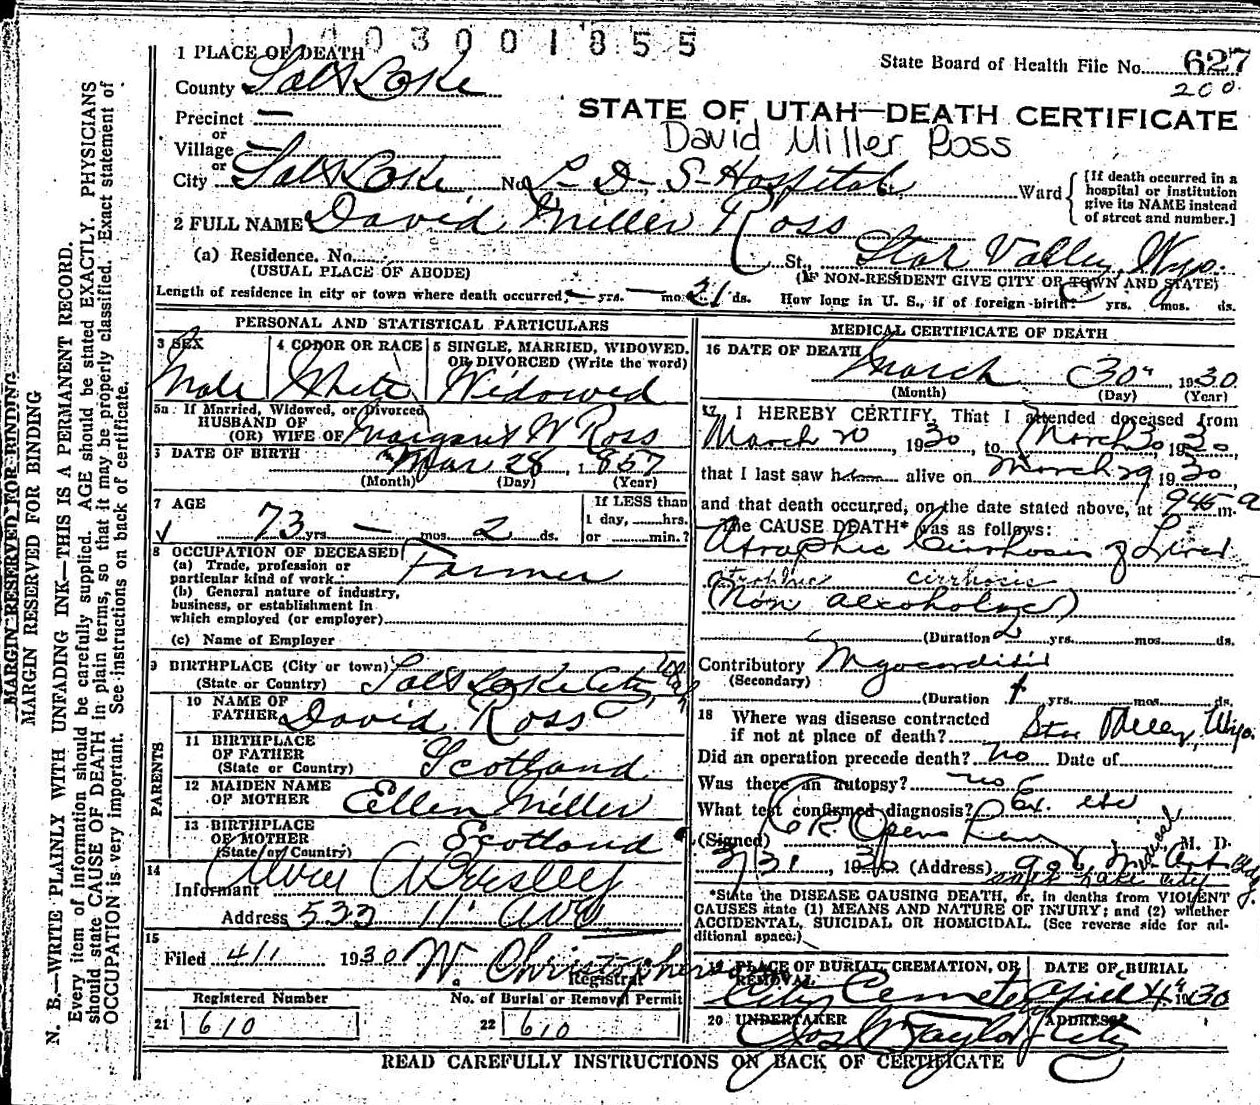 1003001855
1 PLACE OF DEATH
State Board of Health File No. 627
200
County Salt Lake
STATE OF UTAH—DEATH CERTIFICATE
Precinct —
David Miller Ross
or
Village —
or
City Salt Lake No. L-D-S-Hospital Ward
[If death occurred in a
hospital or institution
give its NAME instead
of street and number.]
2 FULL NAME David Miller Ross
(a) Residence. No. St., Star Valley, Wyo.
(USUAL PLACE OF ABODE) (IF NON-RESIDENT GIVE CITY OR TOWN AND STATE)
Length of residence in city or town where death occurred, — yrs. — mo. 21 ds. How long in U. S., if of foreign birth? yrs. mos. ds.
PERSONAL AND STATISTICAL PARTICULARS
3 SEX 4 COLOR OR RACE 5 SINGLE, MARRIED, WIDOWED,
OR DIVORCED (Write the word)
Male White Widowed
5a If Married, Widowed, or Divorced
HUSBAND OF
(OR) WIFE OF Margaret W Ross
6 DATE OF BIRTH Mar 28, 1857
(Month) (Day) (Year)
7 AGE If LESS than
73 yrs — mos. 2 ds. 1 day, hrs.
or min.?
8 OCCUPATION OF DECEASED
(a) Trade, profession or
particular kind of work Farmer
(b) General nature of industry,
business, or establishment in
which employed (or employer)
(c) Name of Employer
9 BIRTHPLACE (City or town)
(State or Country) Salt Lake City, Utah
PARENTS
10 NAME OF
FATHER David Ross
11 BIRTHPLACE
OF FATHER
(State or Country) Scotland
12 MAIDEN NAME
OF MOTHER Ellen Miller
13 BIRTHPLACE
OF MOTHER
(State or Country) Scotland
14
Informant
Address 533 11" Ave
15
Filed 4/1 1930 W. Christopherson
Registrar
Registered Number No. of Burial or Removal Permit
21 610 22 610
MEDICAL CERTIFICATE OF DEATH
16 DATE OF DEATH
March 30" 1930
(Month) (Day) (Year)
17 I HEREBY CERTIFY, That I attended deceased from
March 20, 1930, to March 30, 1930
that I last saw him alive on March 29 1930
and that death occurred, on the date stated above, at 945 m. a
The CAUSE DEATH* was as follows:
Atrophic Cirrhosis of Liver
atrophic cirrhosis
(Non alcoholic)
(Duration 2 yrs. mos. ds.
Contributory Myocarditis
(Secondary)
(Duration yrs. mos. ds.
18 Where was disease contracted
if not at place of death? Star Valley, Wyo.
Did an operation precede death? no Date of
Was there an autopsy? no
What test confirmed diagnosis? Ex. etc
(Signed) M. D.
3/31, 1930 (Address) Medical Art Bldg.
Salt Lake City
*State the DISEASE CAUSING DEATH, or, in deaths from VIOLENT
CAUSES state (1) MEANS AND NATURE OF INJURY; and (2) whether
ACCIDENTAL, SUICIDAL OR HOMICIDAL. (See reverse side for additional space.)
19 PLACE OF BURIAL, CREMATION, OR
REMOVAL DATE OF BURIAL
City Cemetery April 4" 1930
20 UNDERTAKER ADDRESS
Jos Wm Taylor City
READ CAREFULLY INSTRUCTIONS ON BACK OF CERTIFICATE
MARGIN RESERVED FOR BINDING
MARGIN RESERVED FOR BINDING
N. B.—WRITE PLAINLY WITH UNFADING INK—THIS IS A PERMANENT RECORD.
Every item of information should be carefully supplied. AGE should be stated EXACTLY. PHYSICIANS
should state CAUSE OF DEATH in plain terms, so that it may be properly classified. Exact statement of
OCCUPATION is very important. See instructions on back of certificate.